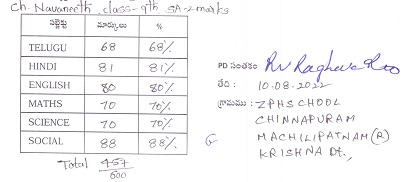 Ch. Navaneeth, class-9th SA-2 marks
సబ్జెక్టు మార్కులు %
TELUGU 68 68%
HINDI 81 81%
ENGLISH 80 80%
MATHS 70 70%
SCIENCE 70 70%
SOCIAL 88 88%
Total 457
600
PD సంతకం Rv Raghava Rao
తేది : 10.08.2022
గ్రామము : ZPHSCHOOL
CHINNAPURAM
G MACHILIPATNAM (R)
KRISHNA Dt.,